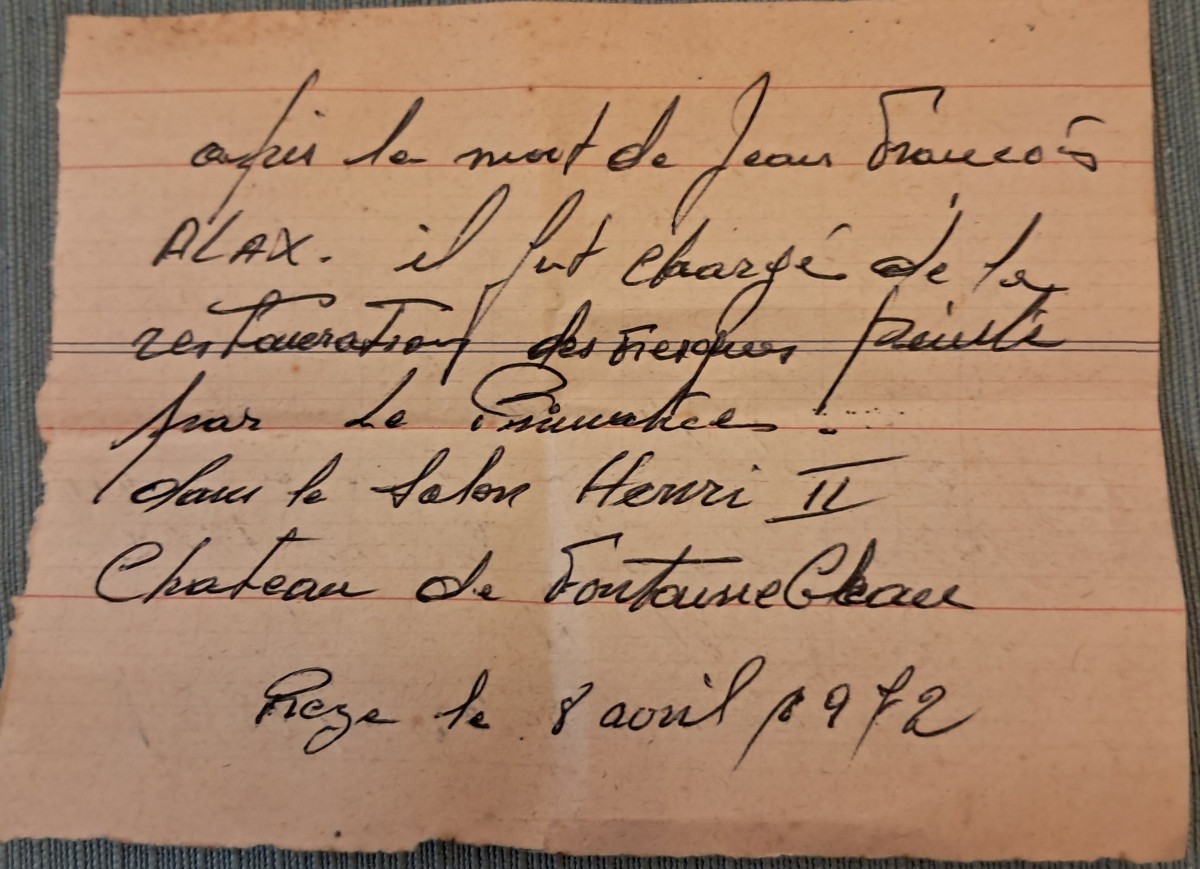 après la mort de Jean François
ALAX. il fut chargé de la
restauration des fresques peinte
par Le Primatice !
dans le Salon Henri II
Chateau de Fontainebleau
le 8 avril 1972